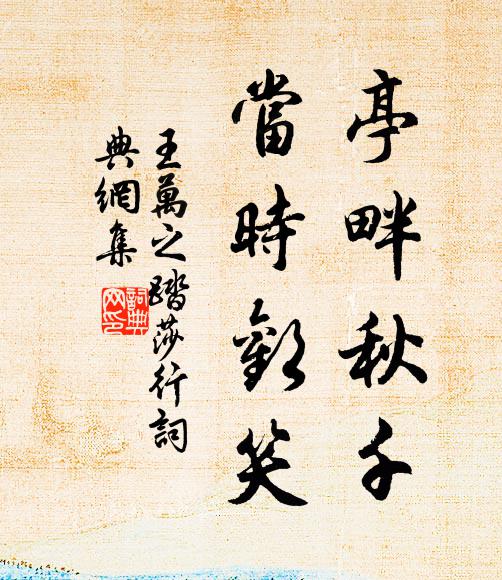 亭畔秋千
當時歡笑
王萬之踏莎行詞
典網集
詞典网印